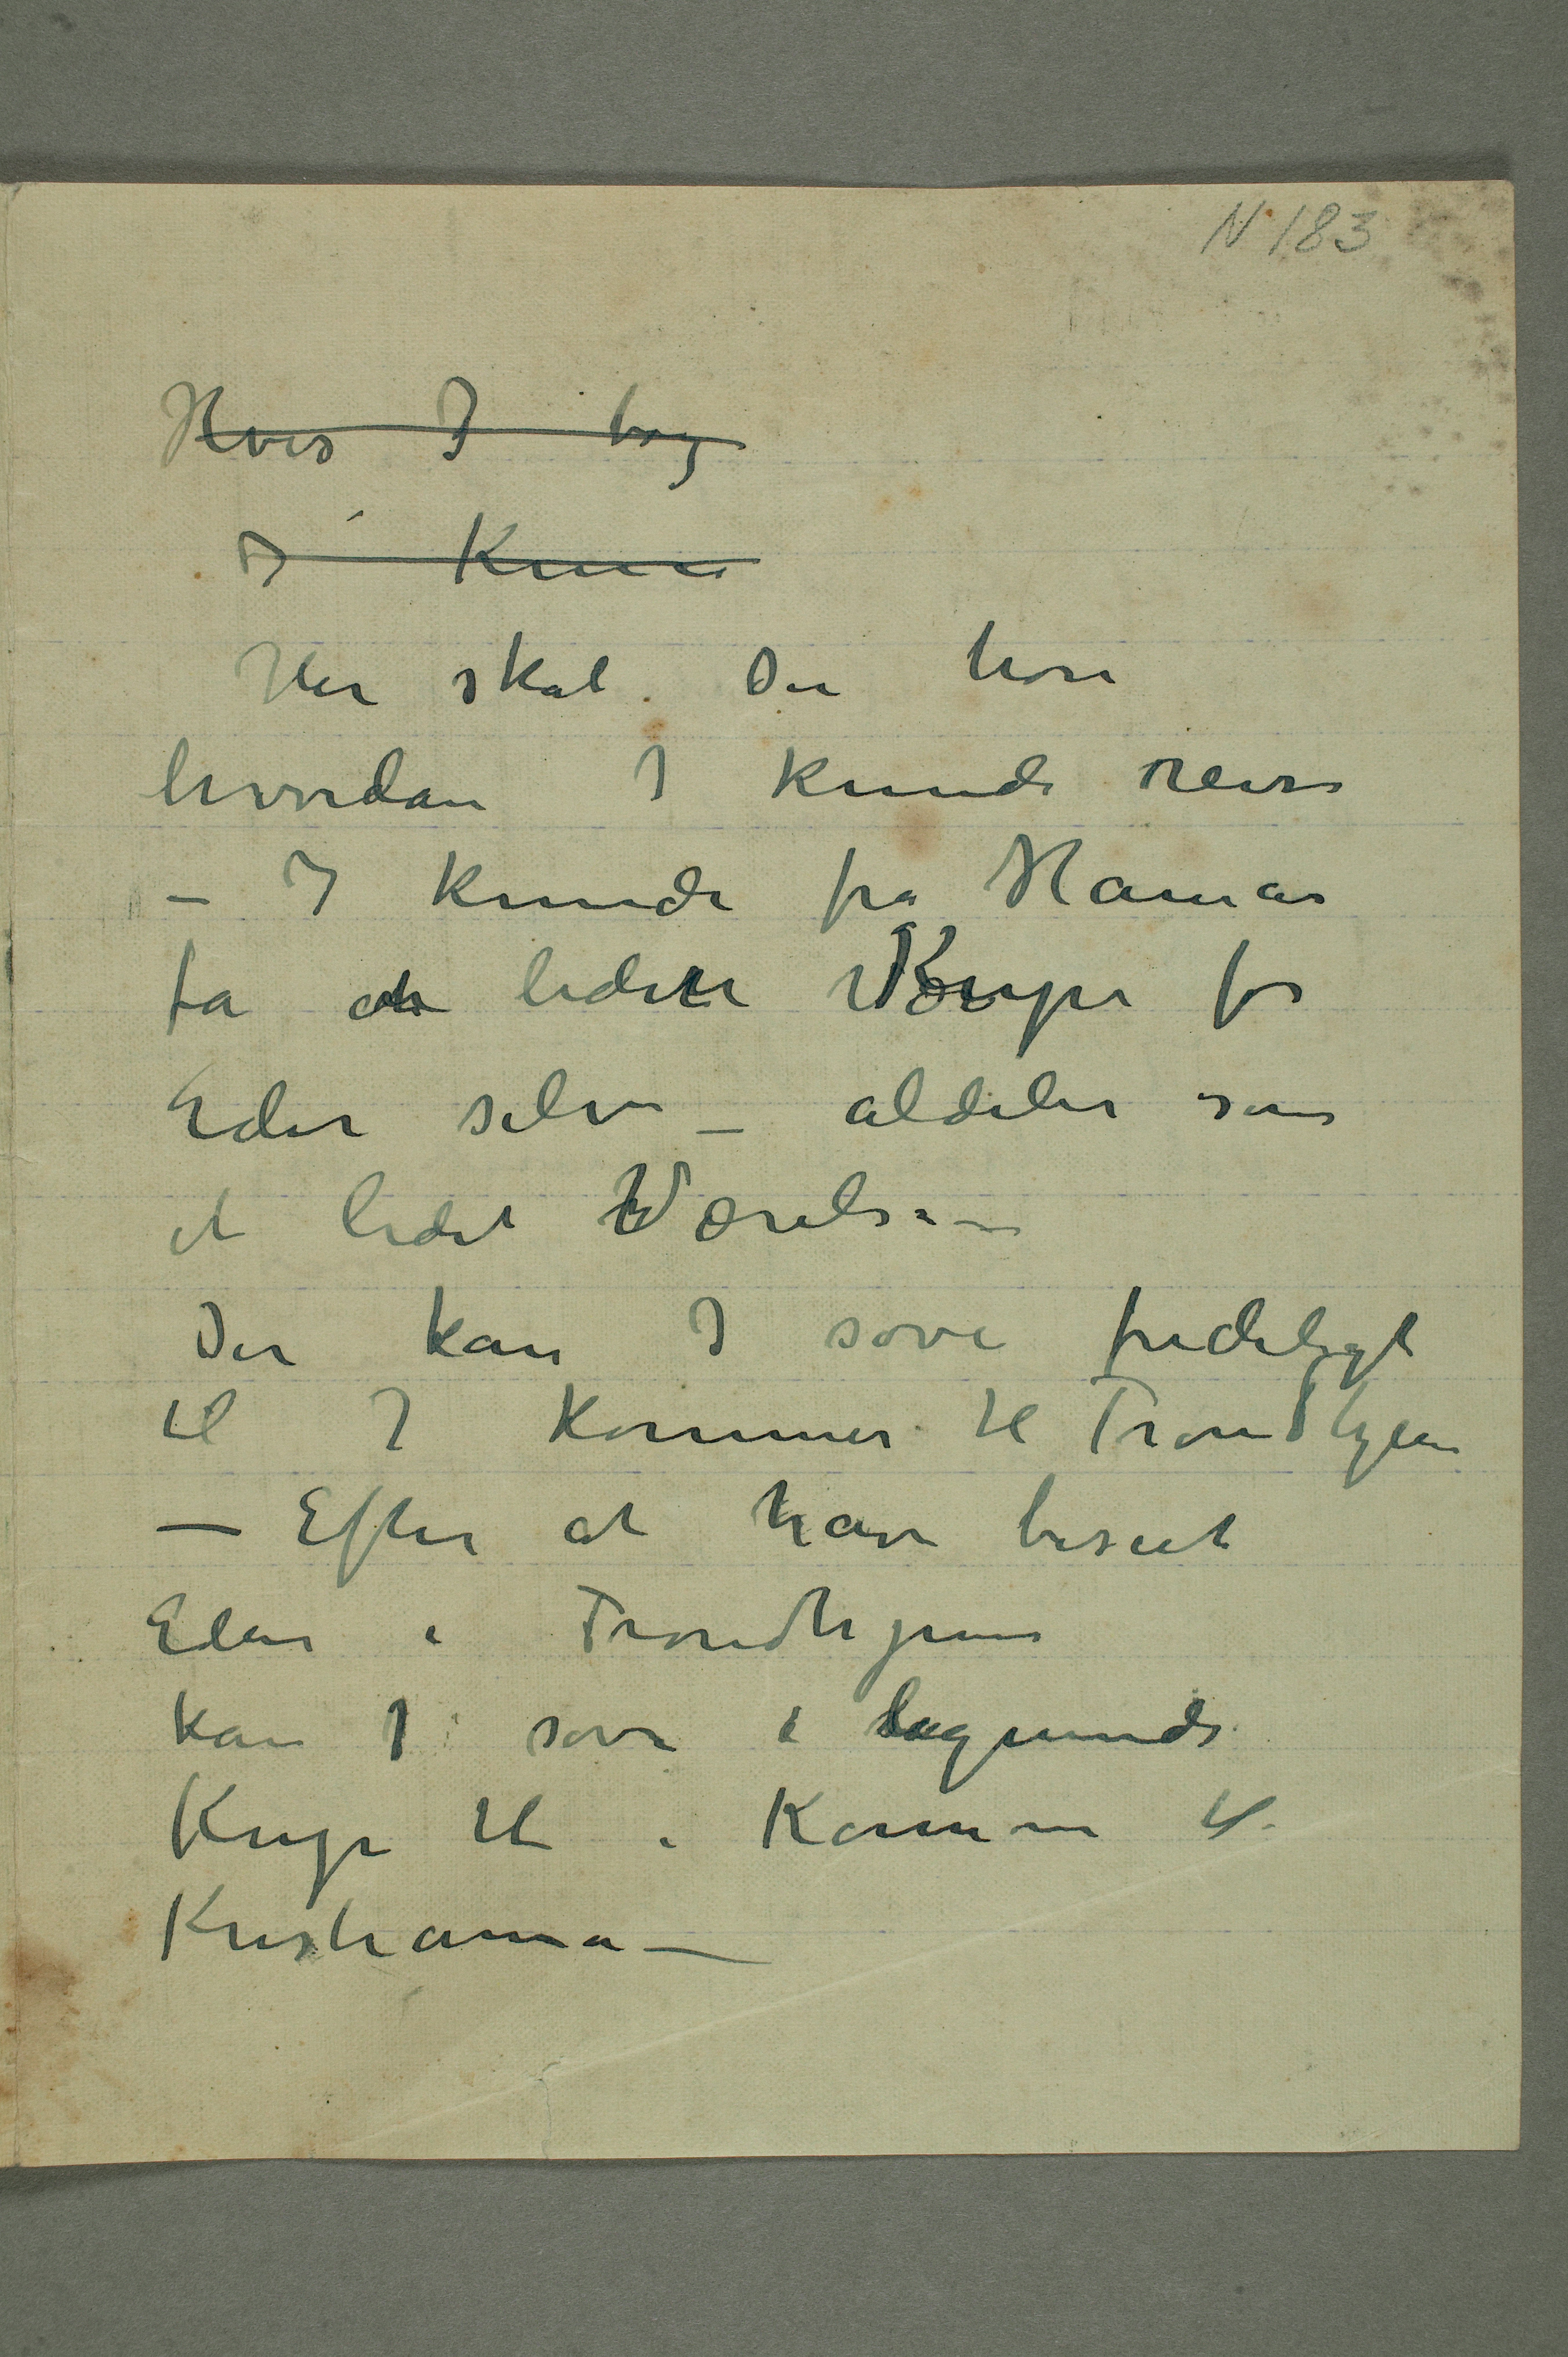 N 183
Hvis I tog
I Kunne
Her skal Du høre
hvordan I kunde reise
– I kunde fra Hamar
få en liden Kupe for
Eder selv – aldeles som
et lidet Værelse –
Der kan I sove fredeligt
til I kommer til Trondhjem
– Efter at have beseet
Eder i Trondhjem
kan I sove i lignende
Kupe til i Kommer til
Kristiania –